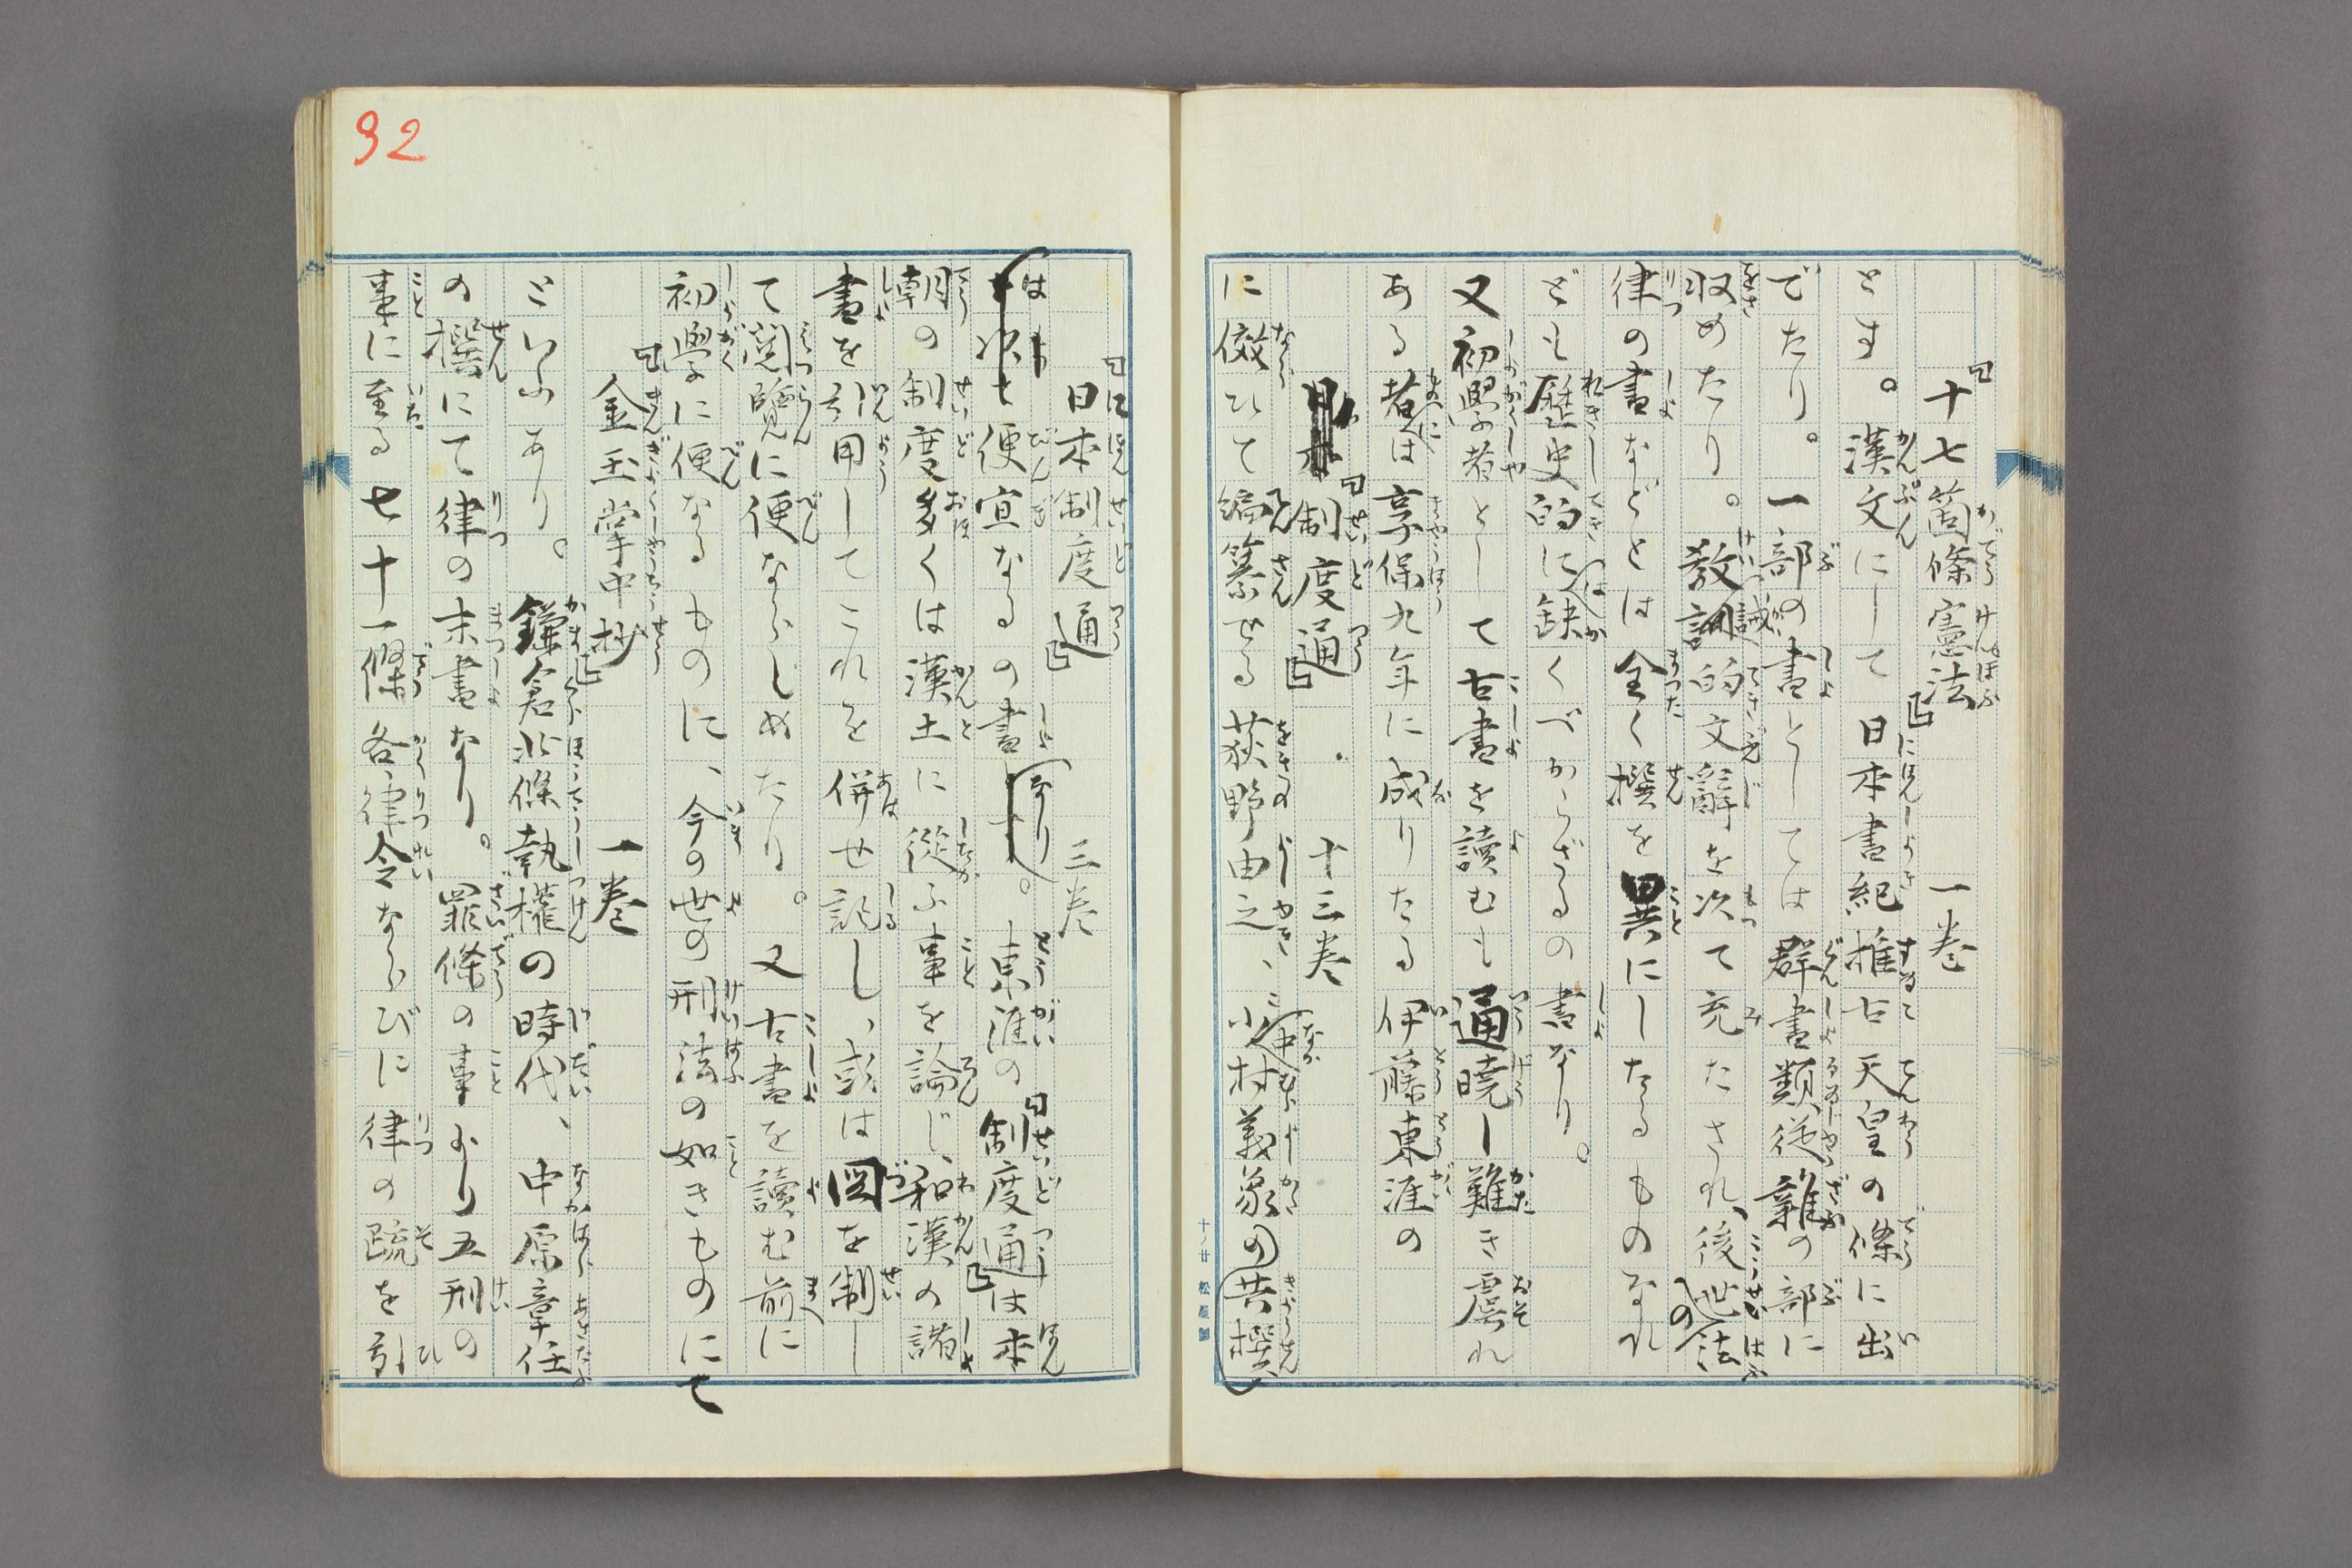 十七箇條憲法 一巻
とす。漢文にして日本書紀推古天皇の條に出
でたり。一部の書としては群書類従雜の部に
収めたり。教誡的文辭を次て充たされ、後世の法
律の書などとは全く撰を異にしたるものなれ
ども歴史的には缺くべからざるの書なり。
又初學者として古書を讀むも通曉し難き虞れ
ある者は享保九年に成りたる伊藤東涯の
制度通 十三巻
に倣ひて編纂せる荻野由之、小中村義象の共撰
日本制度通 三巻
は便宜なるの書なり。東涯の制度通は本
朝の制度多くは漢土に從ふ事を論じ、和漢の諸
書を引用してこれを併せ記し、或は図を制し
て閲覽に便ならしめたり。又古書を讀む前に
初學に便なるものに、今の世の刑法の如きものにて
金玉掌中抄 一巻
といふあり。鎌倉北條執權の時代、中原章任
の撰にて律の末書なり。罪條の事より五刑の
事に至る七十一條各律令ならびに律の疏を引
32
十ノ廿 松屋製